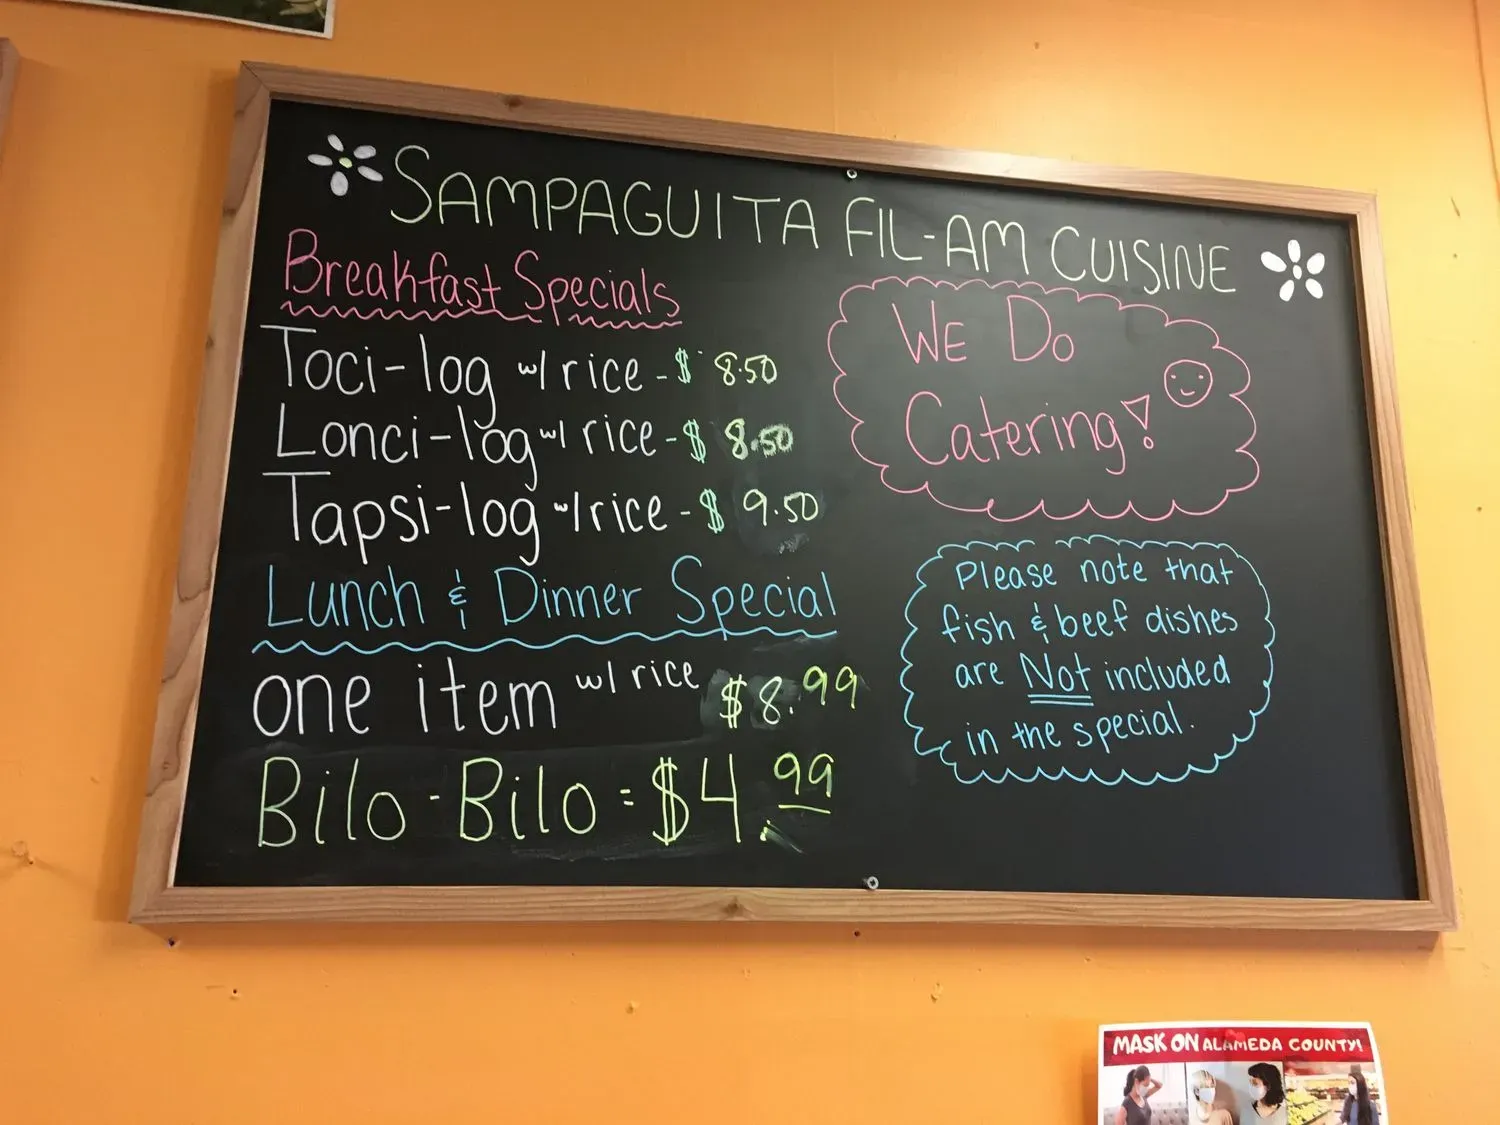 SAMPAGUITA FIL-AM CUISINE
Breakfast Specials
Toci-log w/ rice - $ 8.50
Lonci-log w/ rice - $ 8.50
Tapsi-log w/ rice - $ 9.50
Lunch & Dinner Special
one item w/ rice $8.99
Bilo-Bilo = $4.99
WE DO
Catering!
Please note that
fish & beef dishes
are Not included
in the special.
MASK ON ALAMEDA COUNTY!